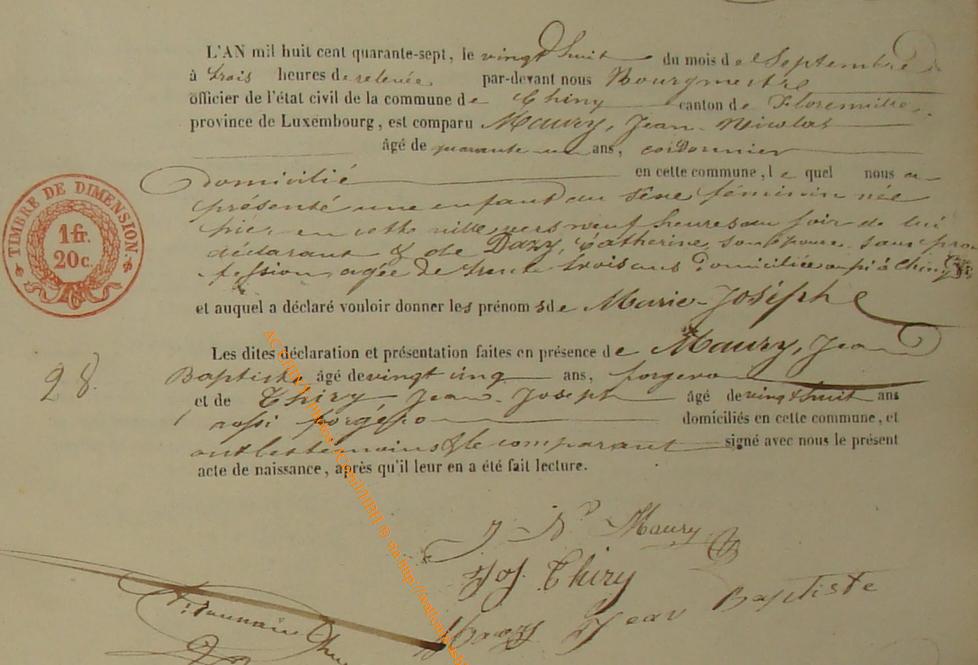 L'AN mil huit cent quarante-sept, le vingt huit du mois de Septembre
à trois heures de relevée par-devant nous Bourgmestre
officier de l'état civil de la commune de Chiny canton de Florenville,
province de Luxembourg, est comparu Maury, Jean-Nicolas
âgé de quarante un ans, cordonnier
domicilié en cette commune, le quel nous a
présenté une enfant du sexe féminin née
hier en cette ville, vers neuf heures du soir de lui
déclarant & de Dazy, Catherine, son épouse, sans pro
fession, agée de trente trois ans domiciliée aussi à Chiny
et auquel a déclaré vouloir donner les prénoms de Marie-Joséphe
Les dites déclaration et présentation faites en présence de Maury, Jean
Baptiste âgé de vingt cinq ans, forgeron
et de Thiry Jean-Joseph âgé de vingt huit ans
aussi forgéron domiciliés en cette commune, et
ont les temoins & le comparant signé avec nous le présent
acte de naissance, après qu'il leur en a été fait lecture.
TIMBRE DE DIMENSION
1 fr.
20 c.
28.
J-N Maury
Jos Thiry
Jean Baptiste